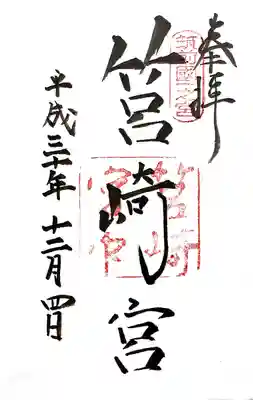 奉拝
筑前國一之宮
筥崎宮
筥崎宮印
平成三十年十二月四日